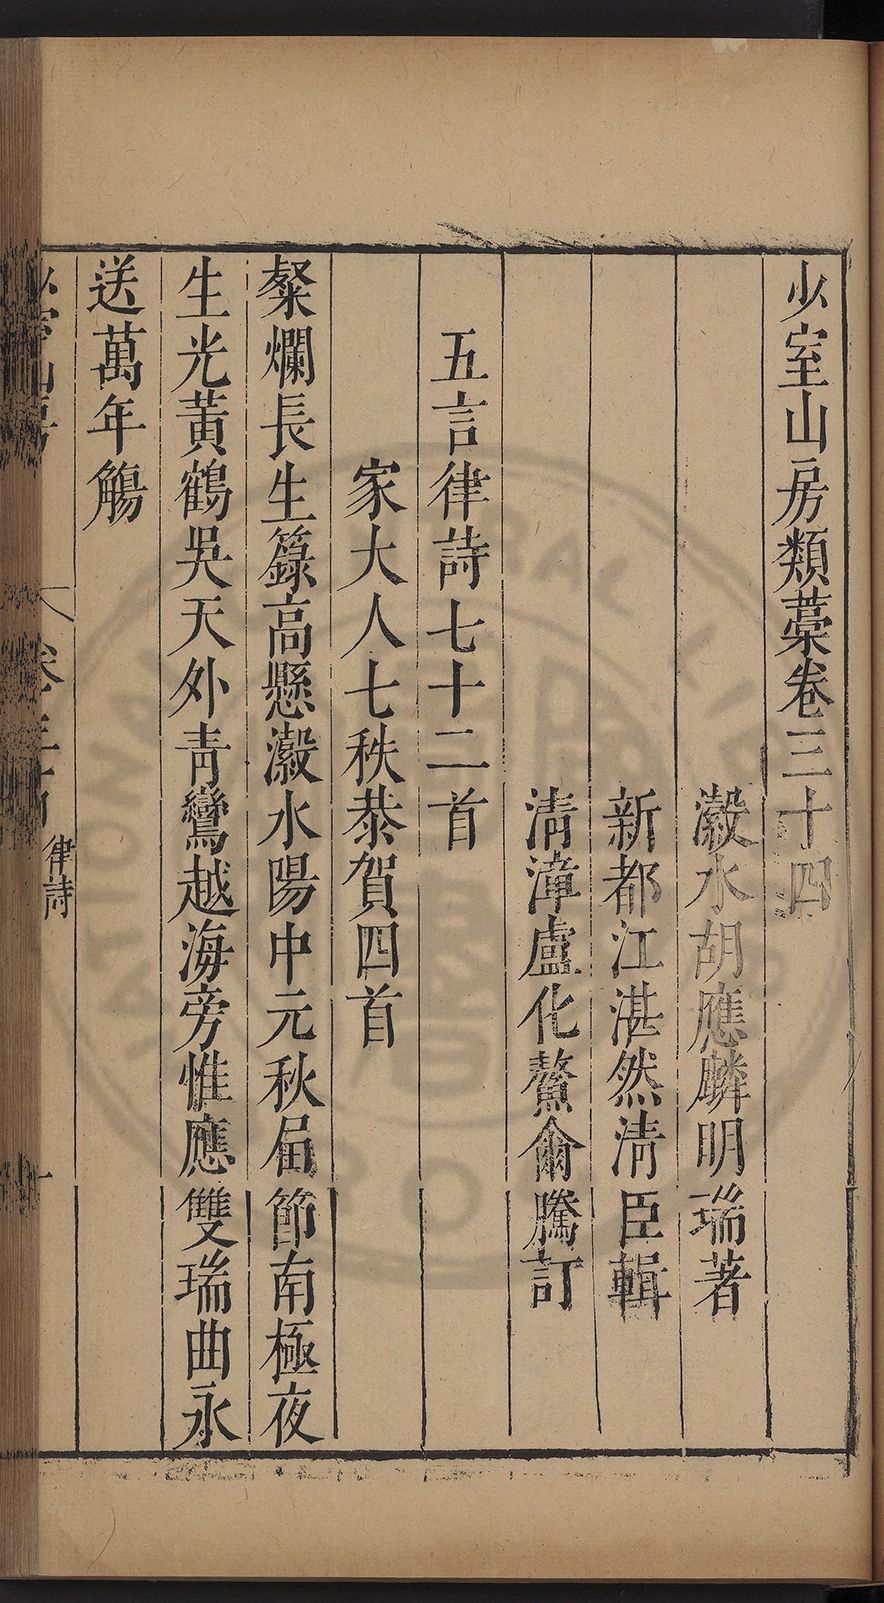 少室山房類藁卷三十四
瀫水胡應麟明瑞著
新都江湛然清臣輯
清漳盧化鰲爾騰訂
五言律詩七十二首
家大人七秩恭賀四首
粲爛長生籙高懸瀫水陽中元秋屆節南極夜
生光黃鶴吳天外青鸞越海旁惟應雙瑞曲永
送萬年觴
律詩